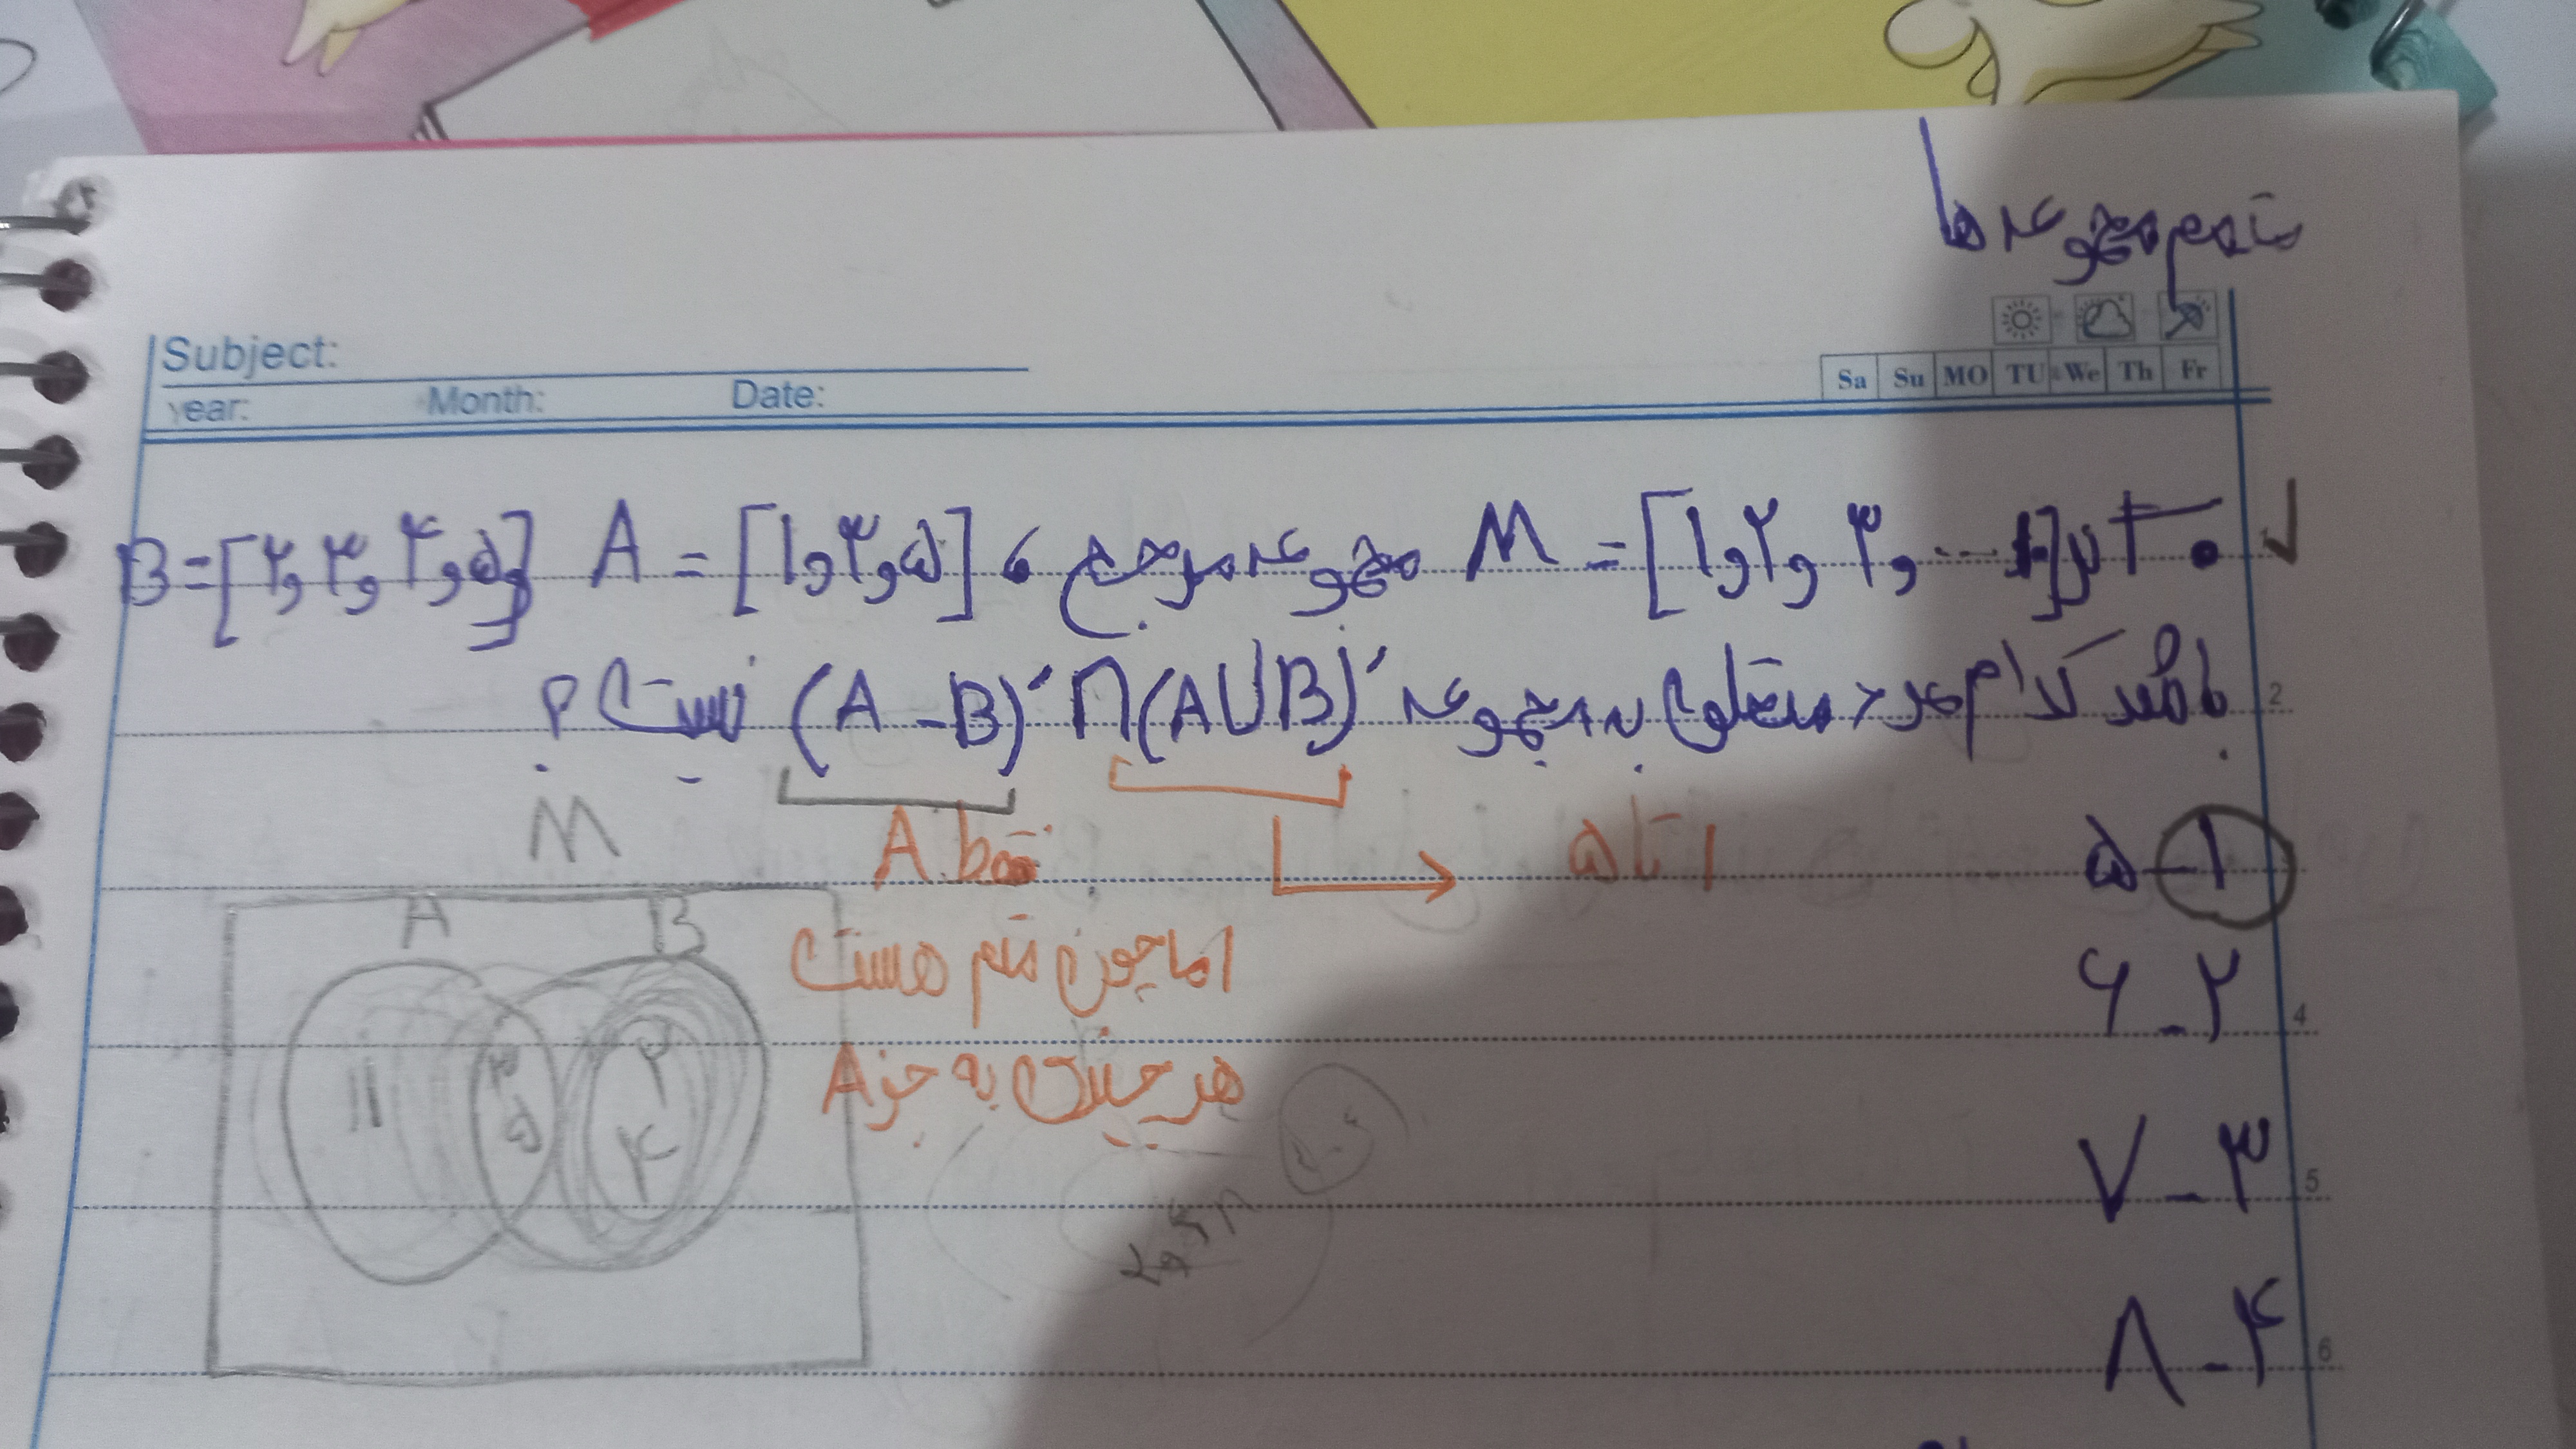 متمم مجموعه ها
Subject:
Year: Month: Date:
Sa Su MO TU We Th Fr
اگر M = [۱ و ۲ و ۳ و ... مجموعه مرجع ، A = [۱ و ۳ و ۵] B = [۲ و ۳ و ۴ و ۵]
باشد کدام عدد متعلق به مجموعه (A - B)′ ∩ (A ∪ B)′ نیست ؟
2
فقط A
۱ تا ۵
۱ - ۵
M
A B
اما چون متمم هست
۲ - ۶
4
۱ ۳ ۵ ۲ ۴
هر چیزی به جز A
۳ - ۷
5
۴ - ۸
6